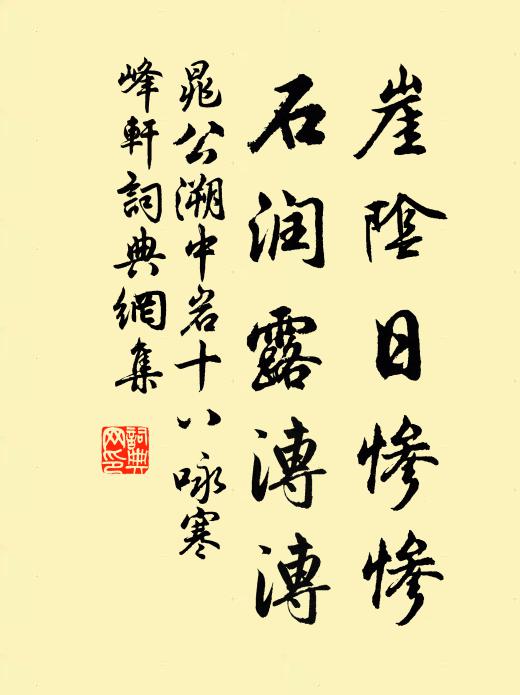 崖陰日慘慘
石润露漙漙
晁公溯中岩十八咏寒
峰軒詞典網集
詞典
网印